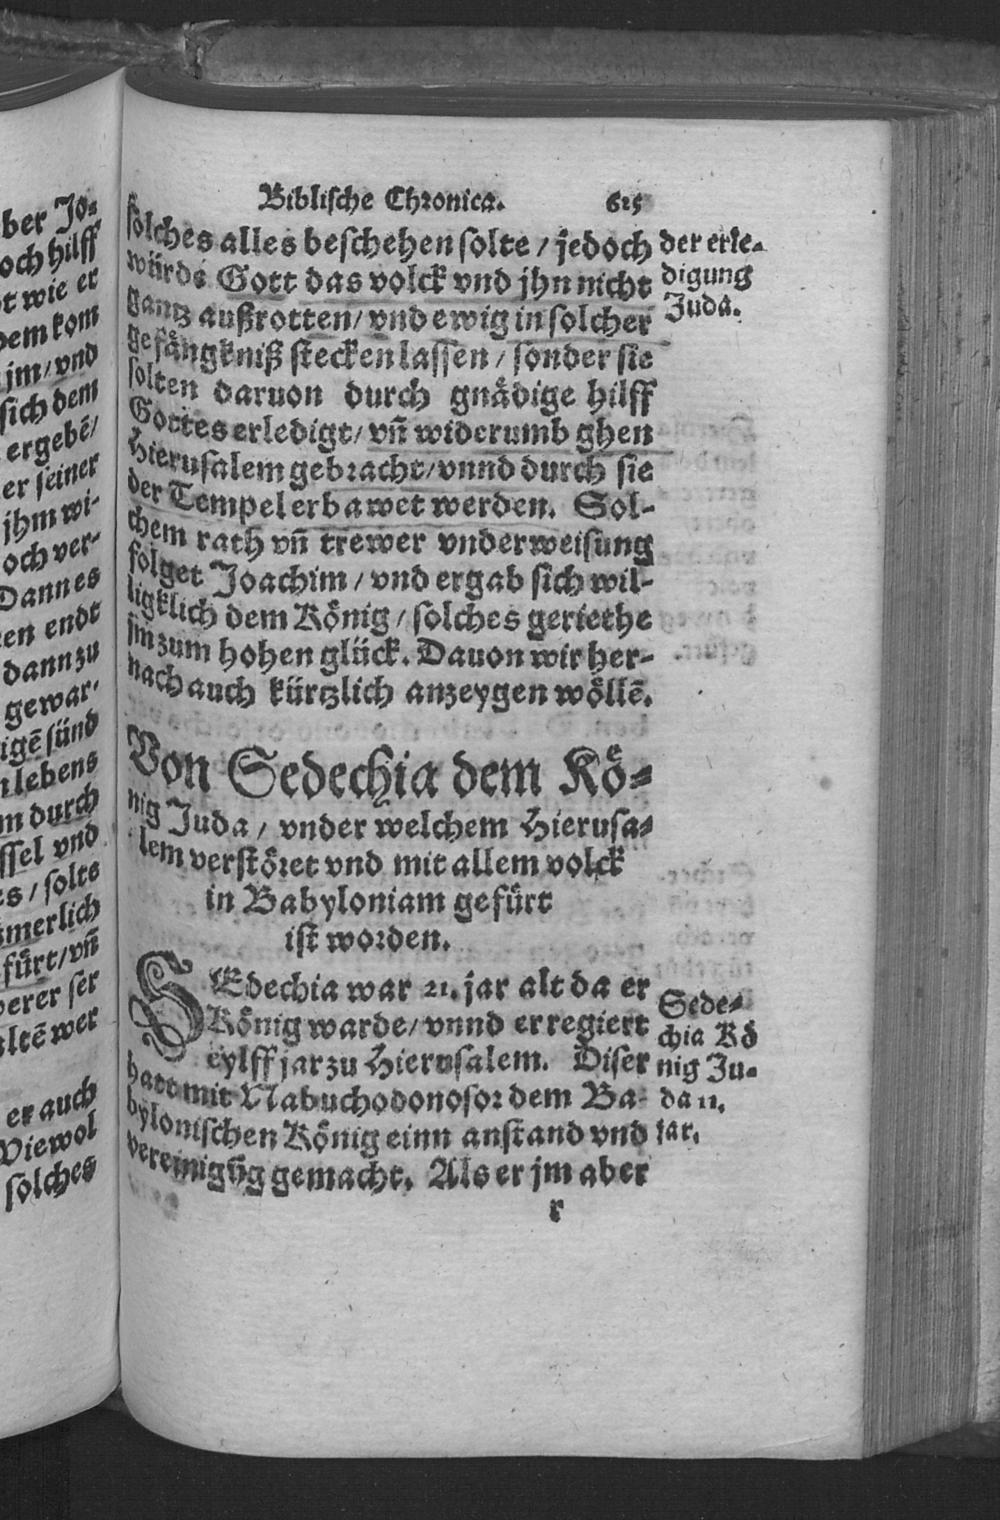 ber Jo-
och hilff
t wie er
dem kom
jm/ vnd
sich dem
ergebē/
er seiner
jhm wi-
och ver-
Dann es
en endt
dann zu
gewar-
igē sünd
lebens
m durch
ssel vnd
s/ solts
merlich
fürt/ vñ
erer ser
ltē wer
er auch
Wiewol
solches
Biblische Chronica. 615
solches alles beschehen solte / jedoch
würde Gott das volck vnd jhn nicht
gantz außrotten/ vnd ewig in solcher
gefängkniß stecken lassen / sonder sie
solten daruon durch gnädige hilff
Gottes erledigt/ vñ widerumb ghen
Hierusalem gebracht/ vnnd durch sie
der Tempel erbawet werden. Sol-
chem rath vñ trewer vnderweisung
folget Joachim / vnd ergab sich wil-
ligklich dem König / solches geriethe
jm zum hohen glück. Dauon wir her-
nach auch kürtzlich anzeygen wöllē.
der erle-
digung
Juda.
Von Sedechia dem Kö-
nig Juda / vnder welchem Hierusa-
lem verstöret vnd mit allem volck
in Babyloniam gefürt
ist worden.
SEdechia war 21. jar alt da er
König warde/ vnnd er regiert
eylff jar zu Hierusalem. Diser
hatt mit Nabuchodonosor dem Ba-
bylonischen König einn anstand vnd
vereinigūg gemacht. Als er jm aber
Sede-
chia Kö
nig Ju-
da 11.
jar.
r